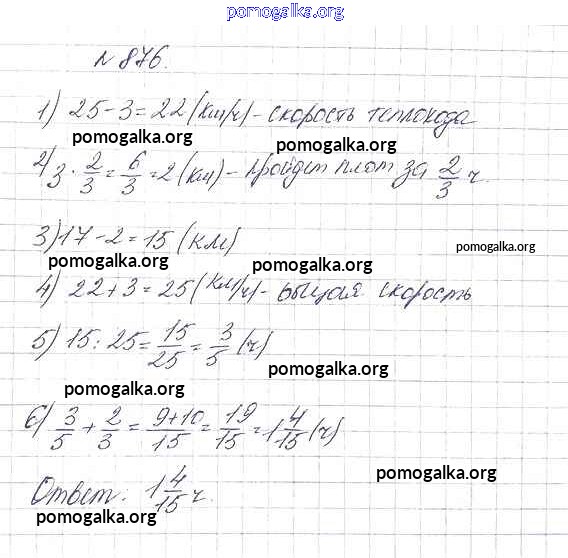 pomogalka.org
№ 876.
1) 25 - 3 = 22 (км/ч) - скорость теплохода
pomogalka.org
2) 3 · 2/3 = 6/3 = 2 (км) - пройдет плот за 2/3 ч.
3) 17 - 2 = 15 (км)
pomogalka.org
pomogalka.org pomogalka.org
4) 22 + 3 = 25 (км/ч) - общая скорость
5) 15 : 25 = 15/25 = 3/5 (ч)
pomogalka.org
pomogalka.org
6) 3/5 + 2/3 = 9+10/15 = 19/15 = 1 4/15 (ч)
pomogalka.org
Ответ: 1 4/15 ч.
pomogalka.org